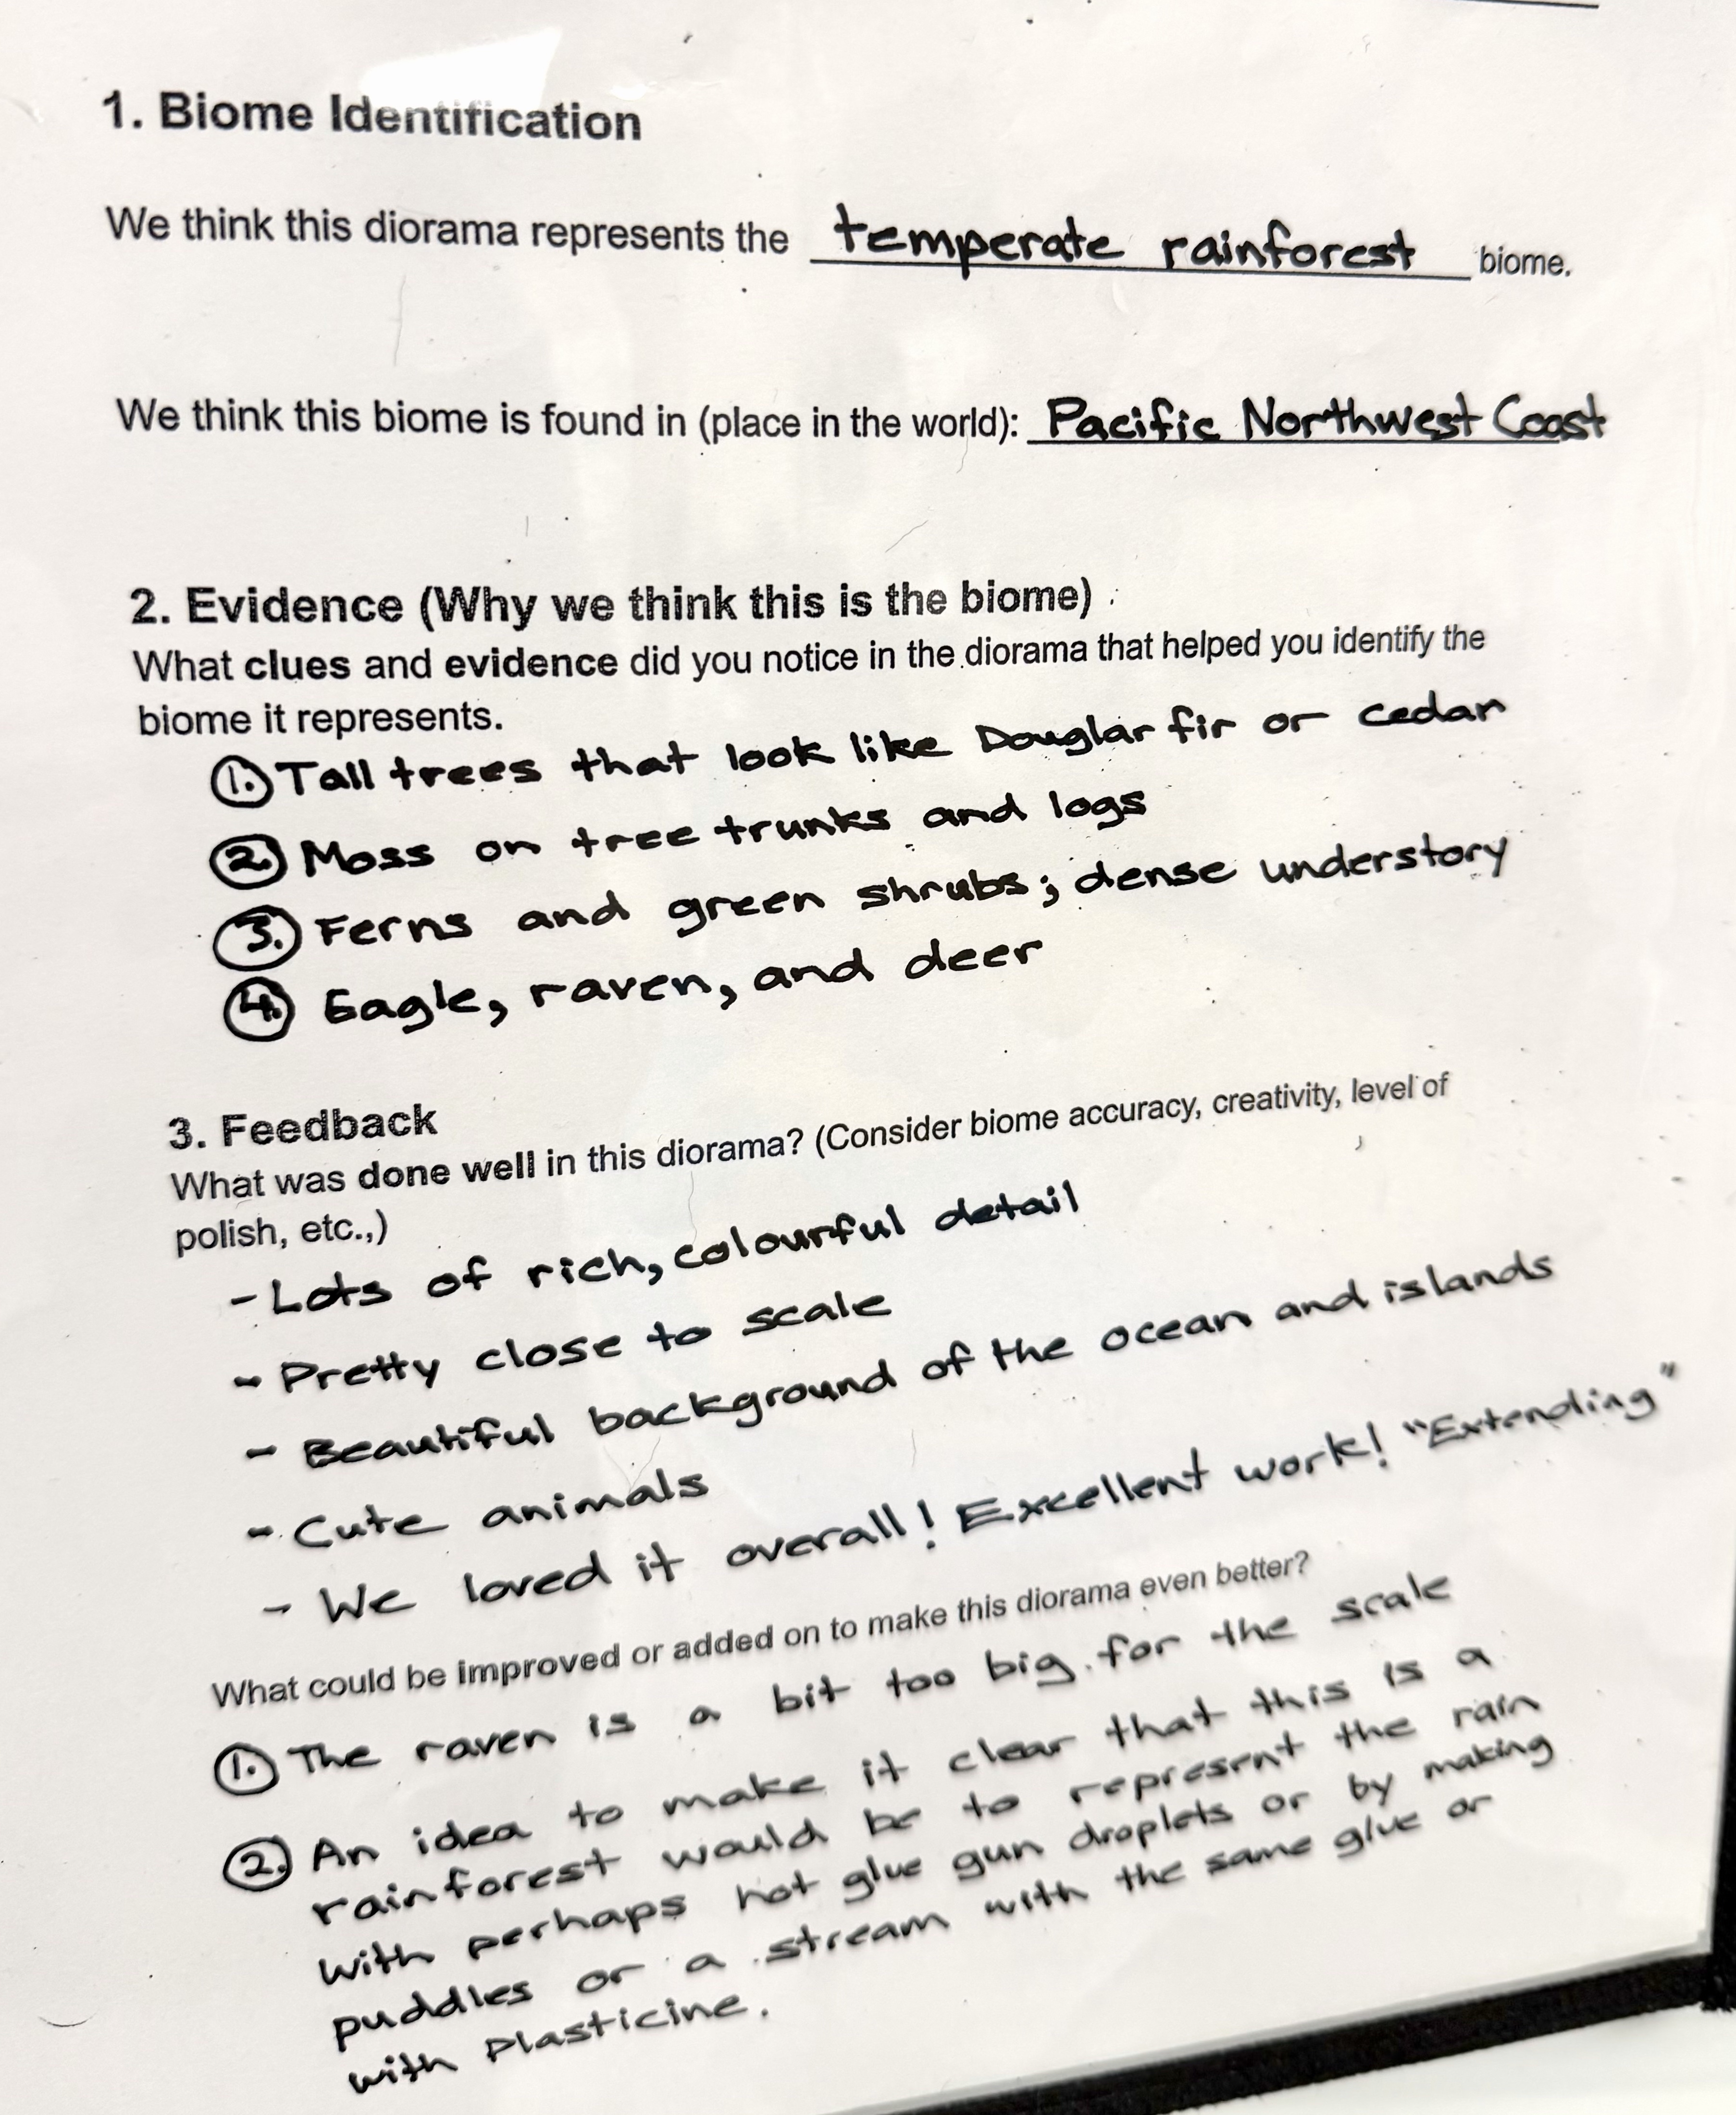 1. Biome Identification
We think this diorama represents the temperate rainforest biome.
We think this biome is found in (place in the world): Pacific Northwest Coast
2. Evidence (Why we think this is the biome)
What clues and evidence did you notice in the diorama that helped you identify the
biome it represents.
1. Tall trees that look like Douglar fir or cedar
2. Moss on tree trunks and logs
3. Ferns and green shrubs; dense understory
4. Eagle, raven, and deer
3. Feedback
What was done well in this diorama? (Consider biome accuracy, creativity, level of
polish, etc.,)
- Lots of rich, colourful detail
- Pretty close to scale
- Beautiful background of the ocean and islands
- Cute animals
- We loved it overall! Excellent work! "Extending"
What could be improved or added on to make this diorama even better?
1. The raven is a bit too big for the scale
2. An idea to make it clear that this is a
rainforest would be to represent the rain
with perhaps hot glue gun droplets or by making
puddles or a stream with the same glue or
with Plasticine.